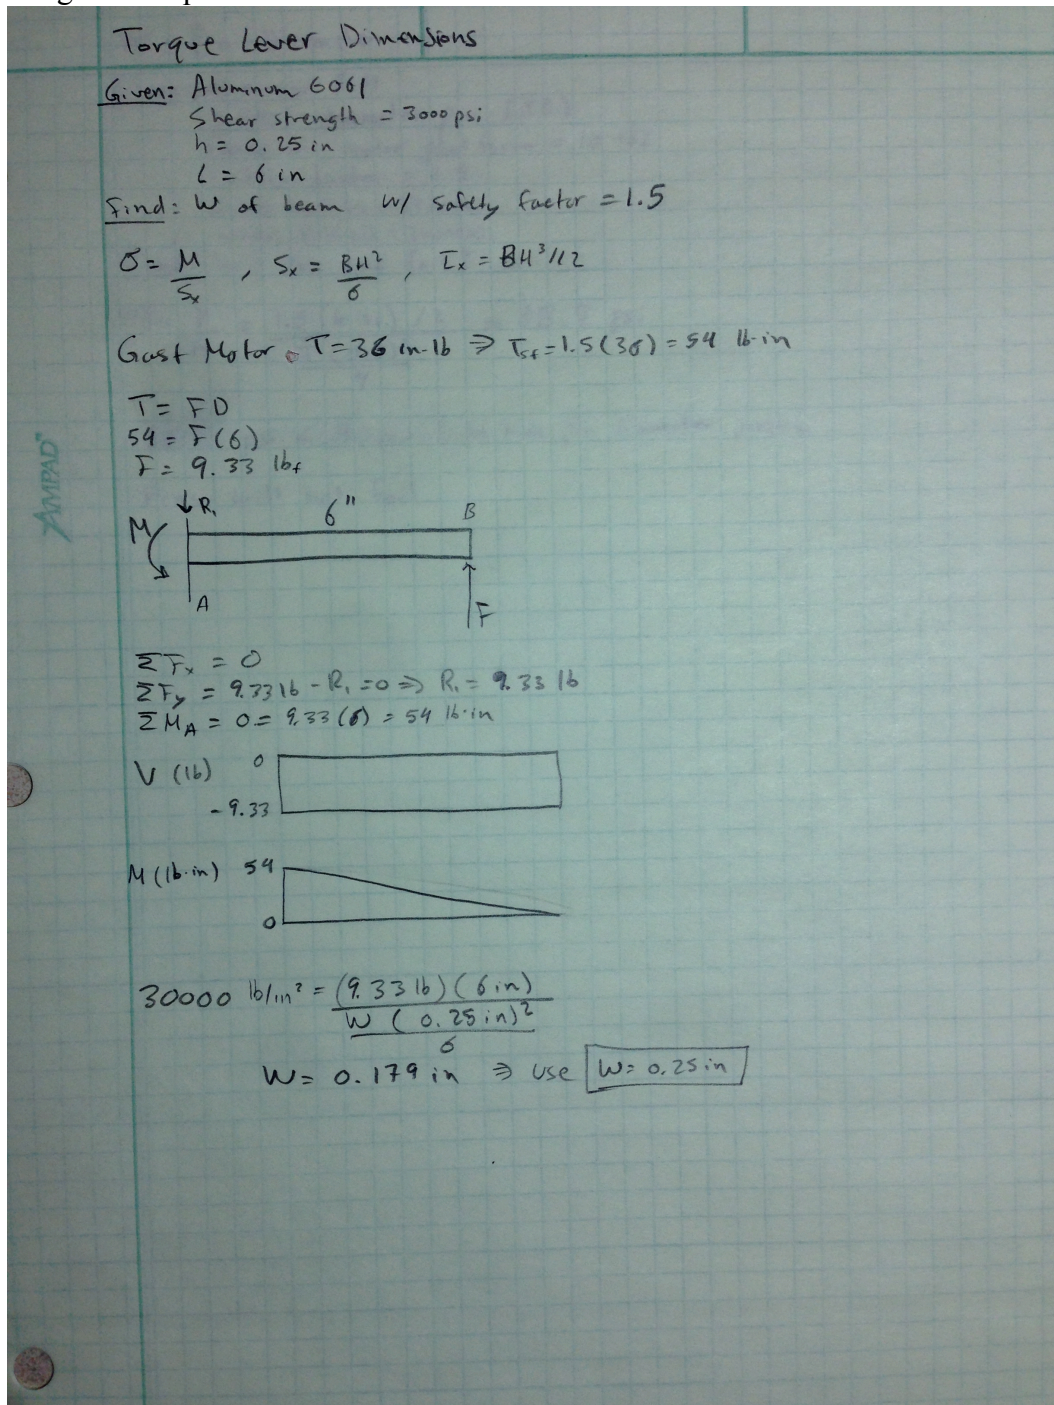 Torque Lever Dimensions
Given: Aluminum 6061
Shear strength = 3000 psi
h = 0.25 in
L = 6 in
Find: W of beam w/ safety factor = 1.5
σ = M/Sx , Sx = BH²/6 , Ix = BH³/12
Gast Motor T=36 in-lb ⇒ Tsf = 1.5(36) = 54 lb·in
T = FD
54 = F(6)
F = 9.33 lbf
↓ R₁ 6" B
M
A F
ΣFx = 0
ΣFy = 9.33 lb - R₁ = 0 ⇒ R₁ = 9.33 lb
ΣMA = 0 = 9.33(6) = 54 lb·in
V (lb) 0
-9.33
M (lb·in) 54
0
30000 lb/in² = (9.33 lb)(6 in) / (W (0.25 in)² / 6)
W = 0.179 in ⇒ use W = 0.25 in
AMPAD™